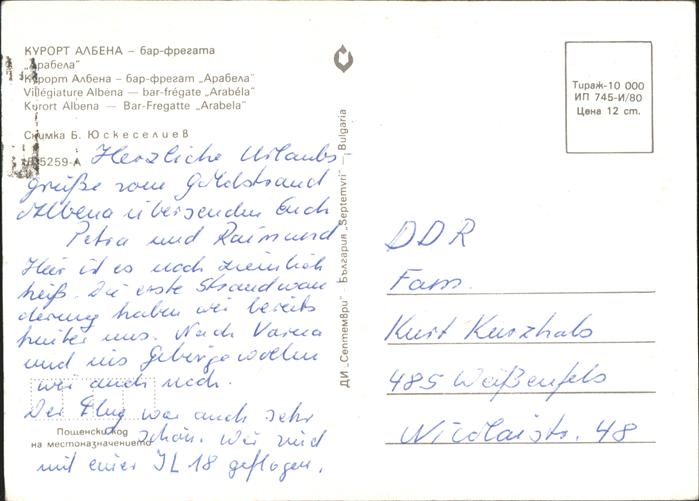 КУРОРТ АЛБЕНА – бар-фрегата
„Арабела"
Курорт Албена – бар-фрегат „Арабела"
Villégiature Albena — bar-frégate „Arabéla"
Kurort Albena — Bar-Fregatte „Arabela"
Снимка Б. Юскеселиев
5259-А
Herzliche Urlaubs-
grüße vom Goldstrand
Albena übersenden Euch
Petra und Raimund
Hier ist es noch ziemlich
heiß. Die erste Strandwan
derung haben wir bereits
hinter uns. Nach Varna
und ins Gebirge wollen
wir auch noch.
Der Flug war auch sehr
schön. Wir sind
mit einer IL 18 geflogen.
Пощенски код
на местоназначението
ДИ „Септември" – България „Septemvri" – Bulgaria
Тираж-10 000
ИП 745-И/80
Цена 12 ст.
DDR
Fam.
Kurt Kurzhals
485 Weißenfels
Nicolaistr. 48